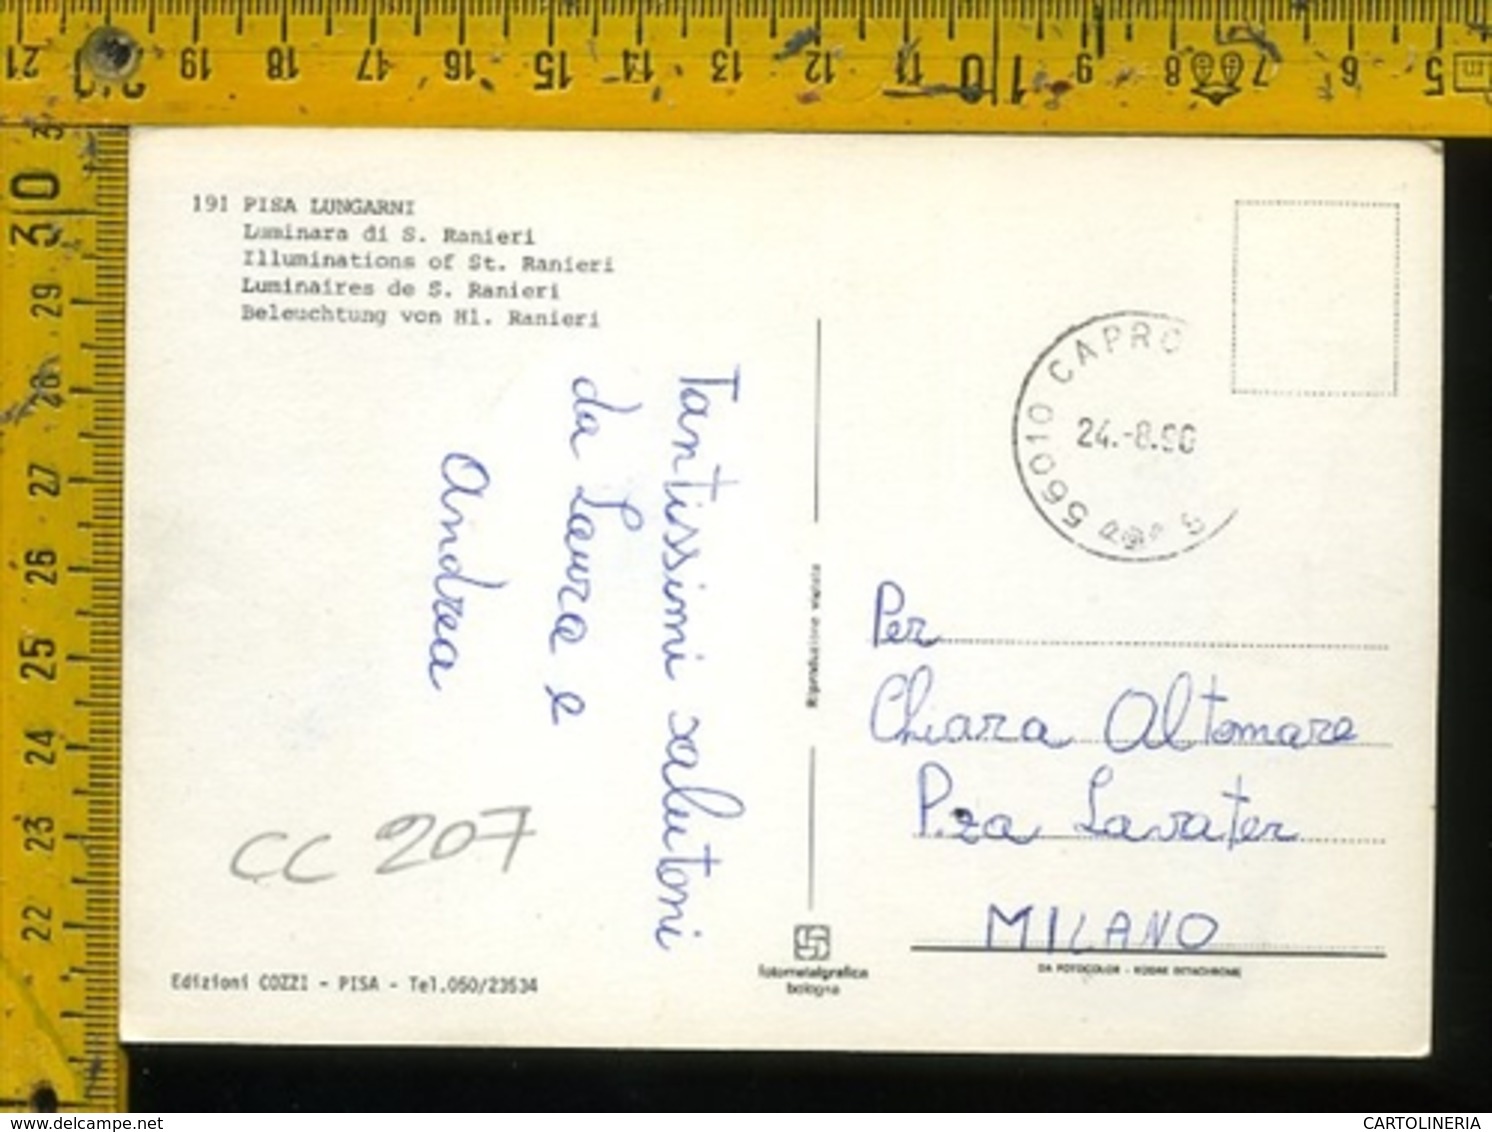 191 PISA LUNGARNI
Luminara di S. Ranieri
Illuminations of St. Ranieri
Luminaires de S. Ranieri
Beleuchtung von Hl. Ranieri
Tantissimi salutoni
da Laura e
Andrea
CC 207
Edizioni COZZI - PISA - Tel.050/23534
Riproduzione vietata
fotometalgrafica
bologna
56010 CAPRO
24.-8.90
Per
Chiara Altomare
P.za Lavater
MILANO
DA FOTOCOLOR - KODAK EKTACHROME
21 20 19 18 17 16 15 14 13 12 11 10 9 8 7 6 5
m
30
29
28
27
26
25
24
23
22
www.delcampe.net
CARTOLINERIA